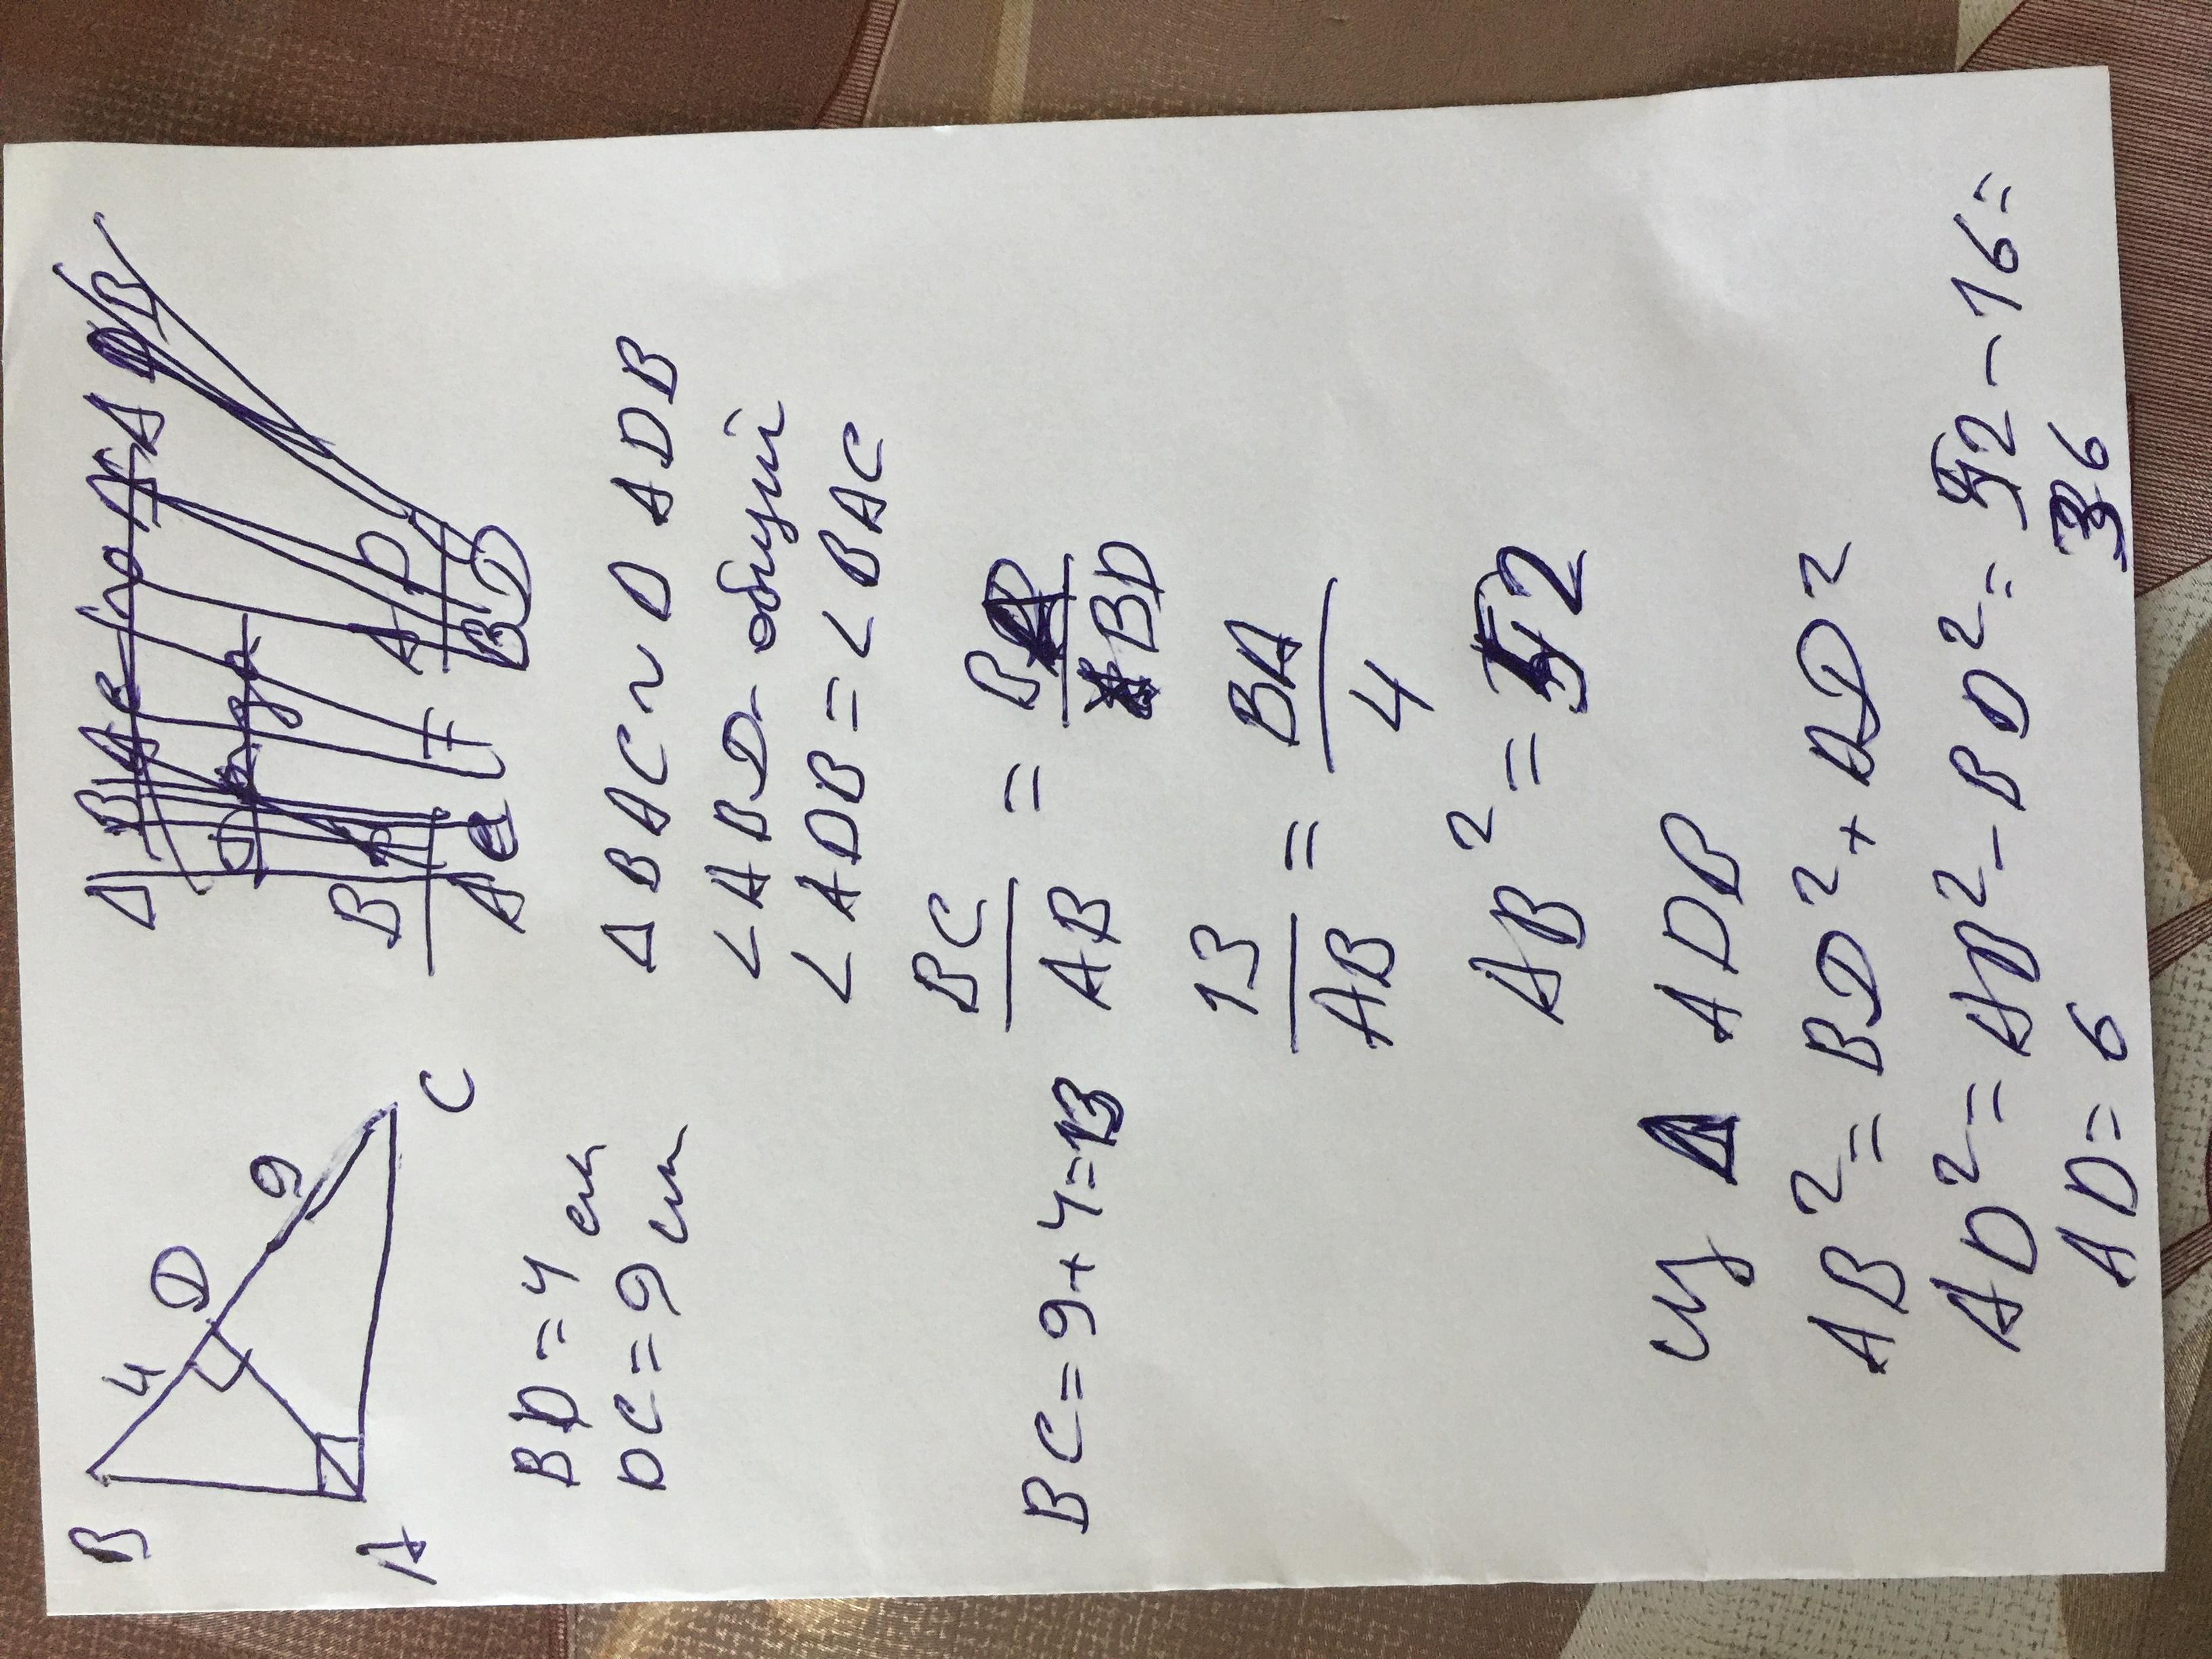 B
4
D
9
A
C
BD = 4 см
DC = 9 см
Δ BAC ~ Δ ADB
∠ ABD - общий
∠ ADB = ∠ BAC
BC = 9 + 4 = 13
BC/AB = BA/BD
13/AB = BA/4
AB² = 52
из Δ ADB
AB² = BD² + AD²
AD² = AB² - BD² = 52 - 16 =
AD = 6
36